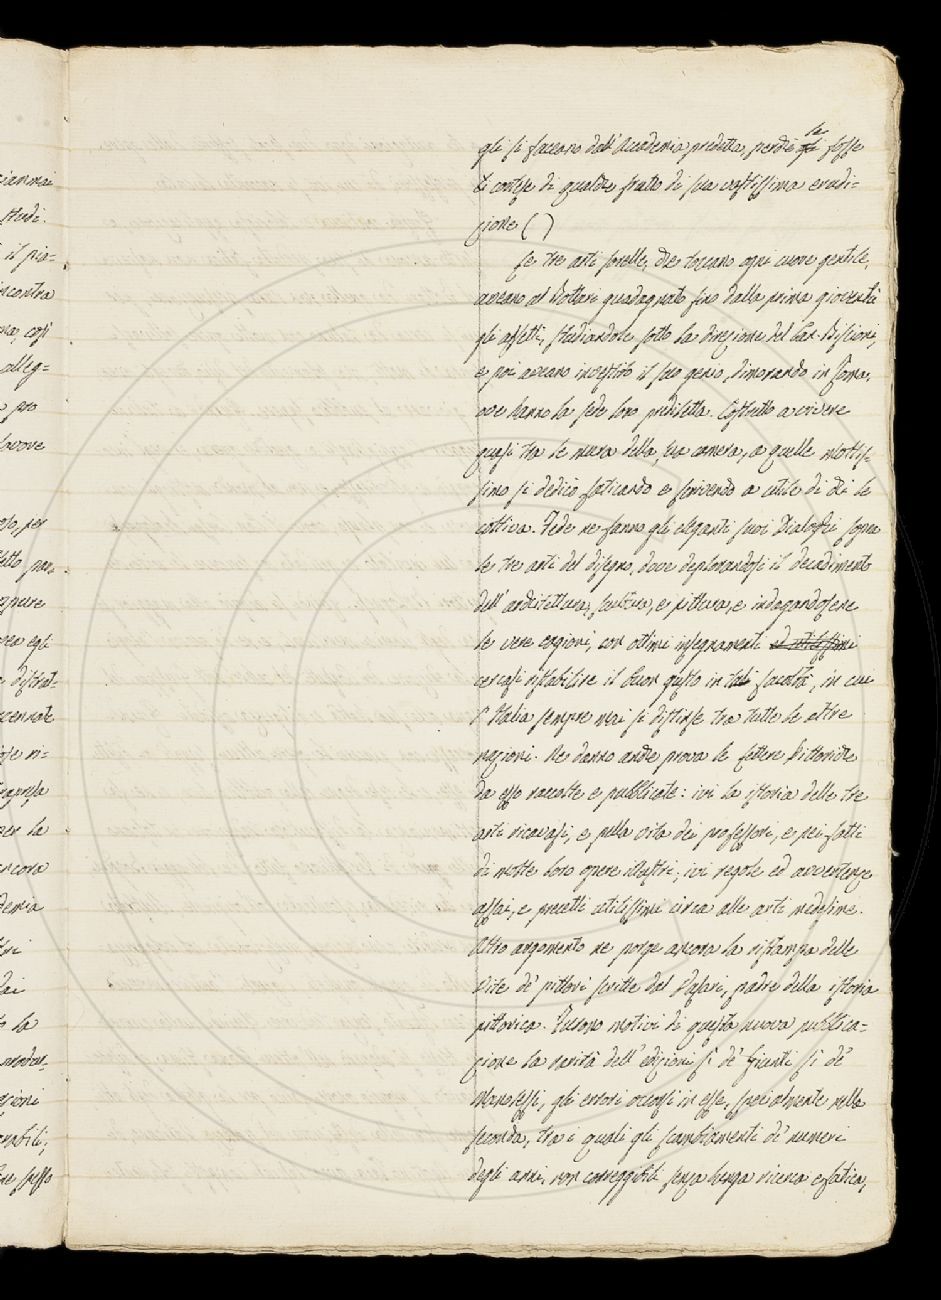 giammai
studi.
il pia=
incontra
così
alleg=
pro
per
egli
distrat=
accennate
ri=
per la
ancora
la
gli si faceano dall'Accademia predetta, perchè le fosse
cortese di qualche frutto di sua vastissima erudi=
zione ( )
Le tre arti sorelle, che toccano ogni cuore gentile,
aveano al Bottari guadagnato fino dalla prima gioventù
gli affetti, studiandole sotto la direzione del Can. Biscioni,
e poi aveano investito il suo genio, dimorando in Roma,
ove hanno la sede loro prediletta. Costretto a vivere
quasi tra le mura della sua camera, a quelle moltis=
simo si dedicò faticando e scrivendo a utile di chi le
coltiva. Fede ne fanno gli eleganti suoi Dialoghi sopra
le tre arti del disegno, dove deplorandosi il decadimento
dell'architettura, scultura, e pittura, e indagandosene
le vere cagioni, con ottimi insegnamenti ed utilissimi
cercasi ristabilire il buon gusto in tali facoltà, in cui
l'Italia sempre mai si distinse tra tutte le altre
nazioni. Ne danno anche prova le Lettere Pittoriche
da esso raccolte e pubblicate: ivi la istoria delle tre
arti ricavasi, e nella vita dei professori, e nei fatti
di molte loro opere illustri; ivi regole ed avvertenze
assai, e precetti utilissimi circa alle arti medesime.
Altro argomento ne porge ancora la ristampa delle
Vite de' pittori scritte dal Vasari, padre della istoria
pittorica. Furono motivi di questa nuova pubblica=
zione la rarità dell'edizioni sì de' Giunti sì de'
Manolessi, gli errori occorsi in esse, specialmente nella
seconda, tra i quali gli scambiamenti de' numeri
degli anni, non correggibili senza lunga ricerca e fatica,